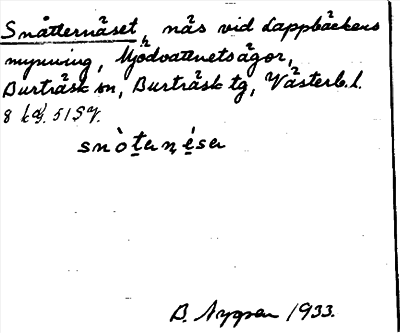 Snåtternäset, näs vid Lappbäckens
mynning, Mjödvattnets ägor,
Burträsk sn, Burträsk tg, Västerb. l.
8 kg. 51 SV.
snòtenésa
B. Nygren 1933.